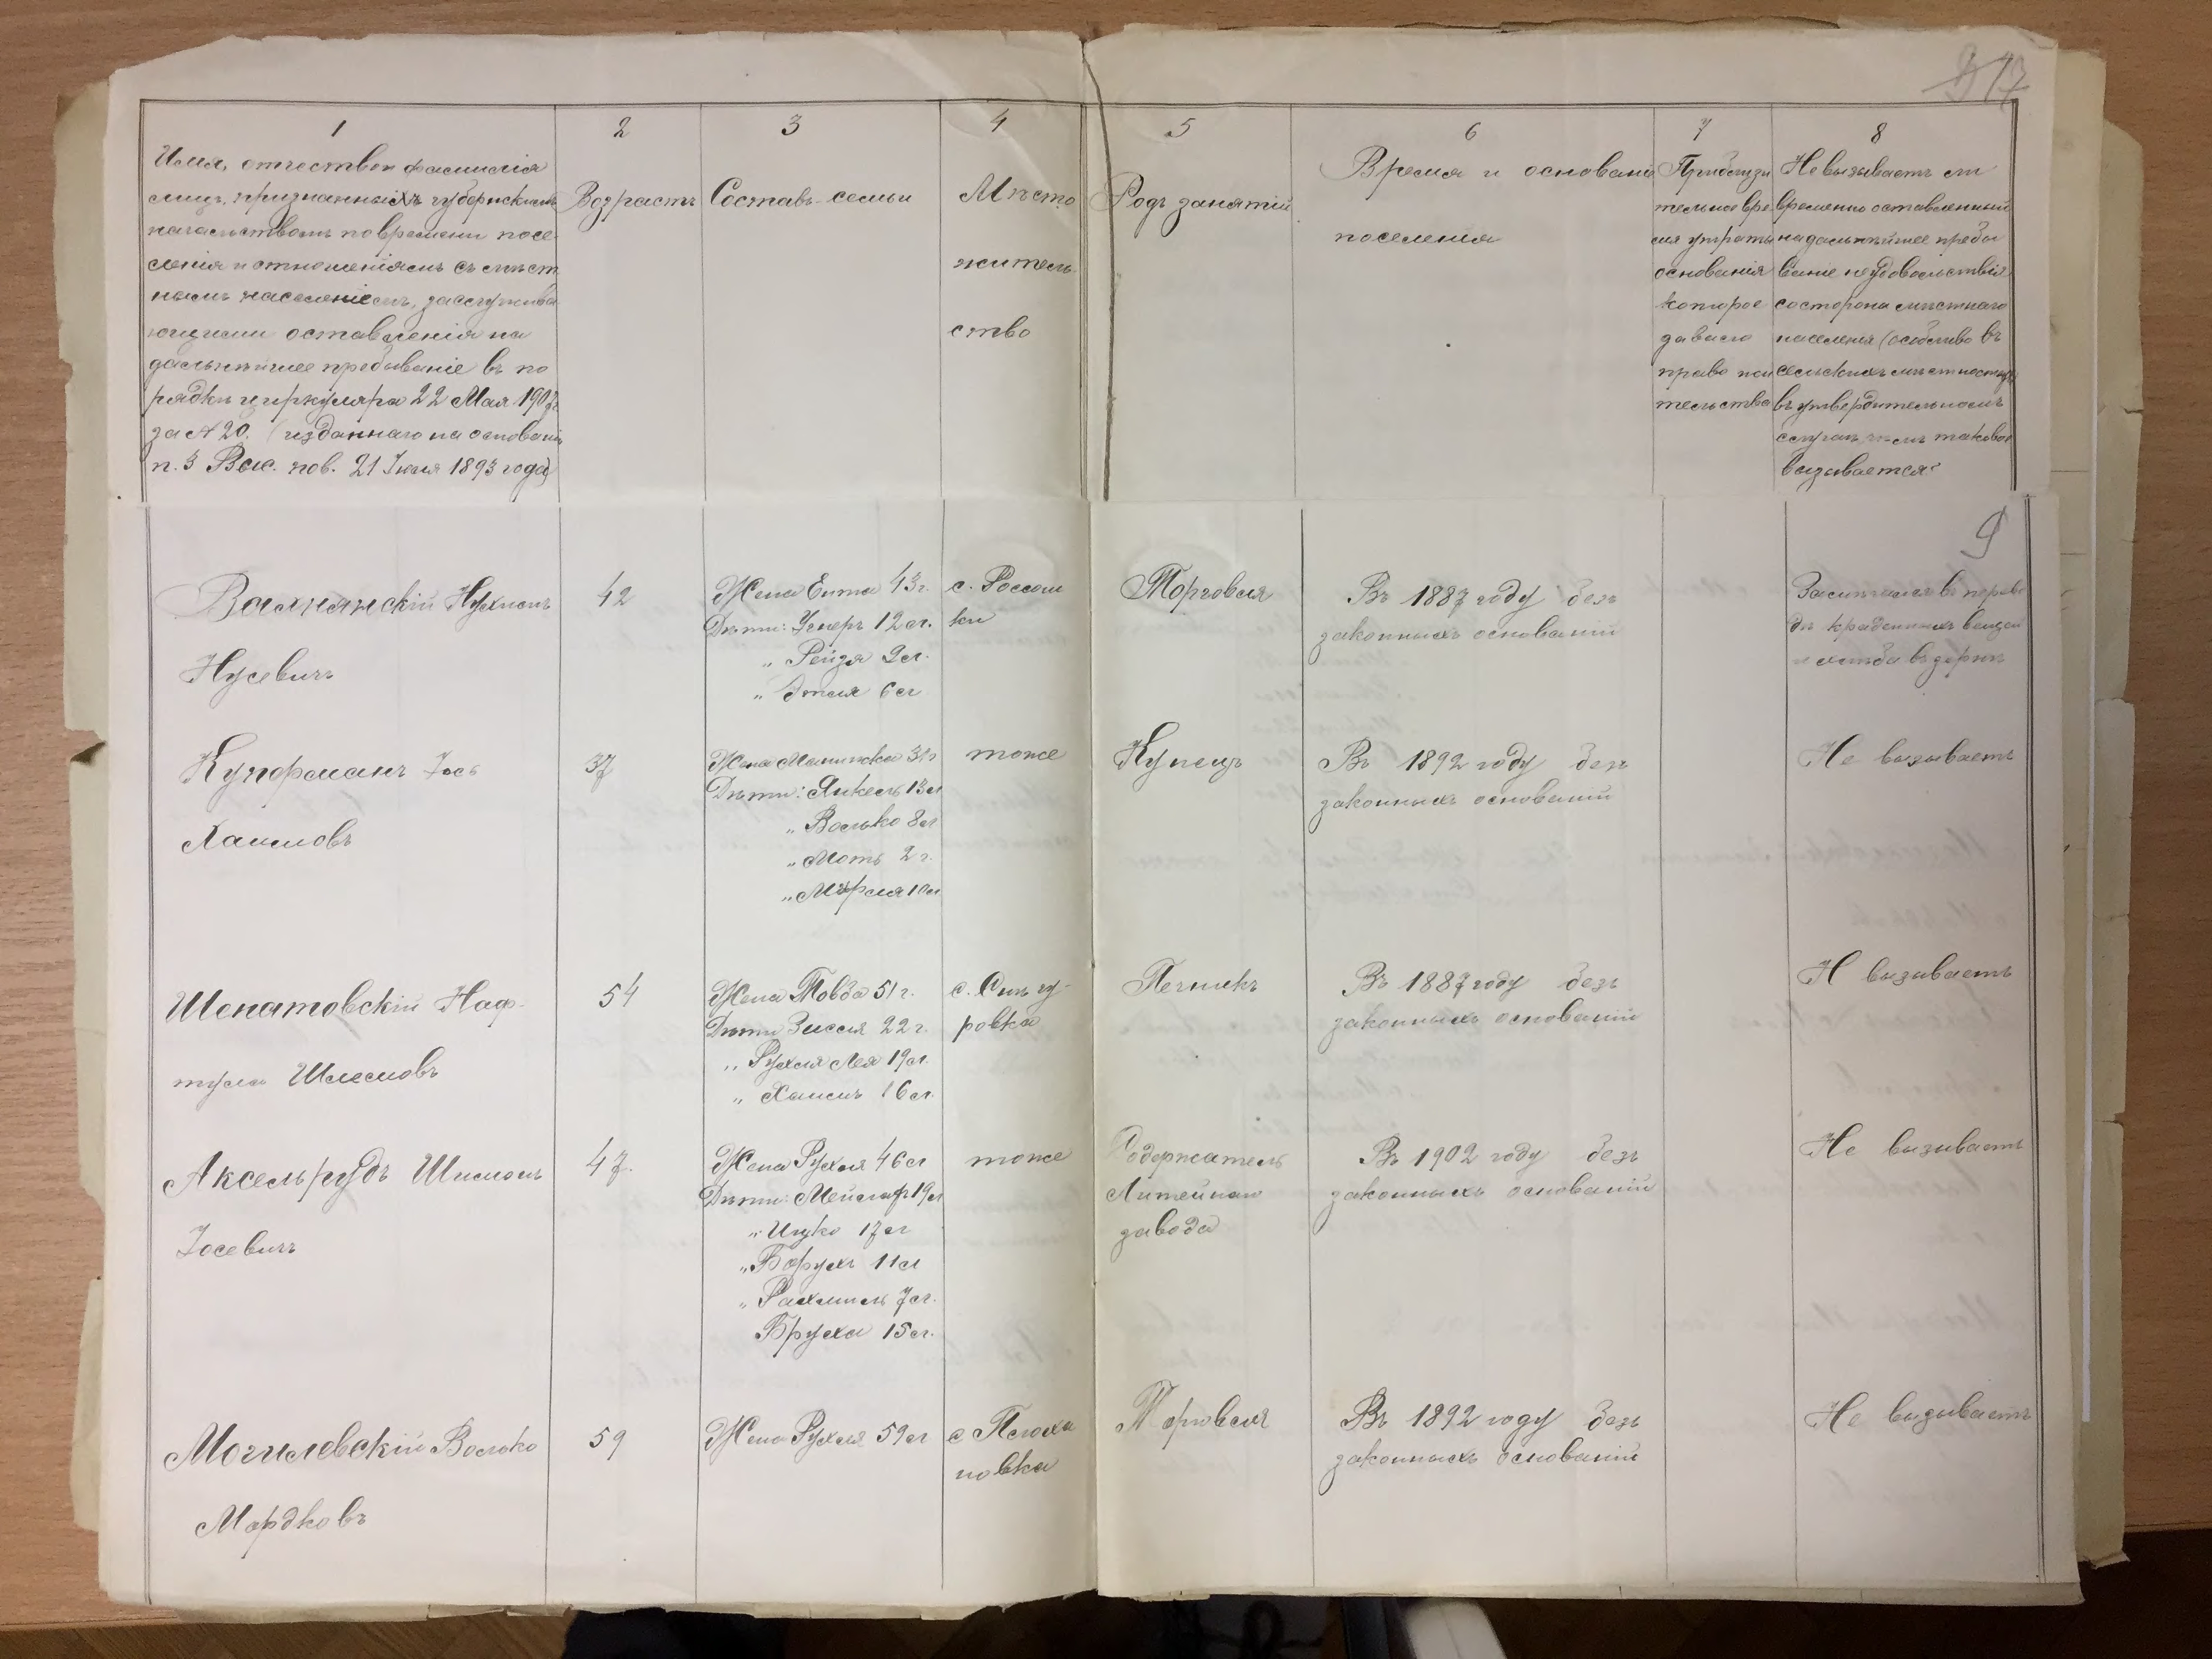 17
1
2
3
4
5
6
7
8
Имя, отчество и фамилія
лицъ, признанныхъ губернскимъ
начальствомъ по времени посе-
ленія и отношеніямъ съ мѣст
нымъ населеніемъ, заслужива
ющими оставленія на
дальнѣйшее пребываніе въ по
рядкѣ циркуляра 22 Мая 1907 г.
за № 20. (изданнаго на основаніи
п. 3 Выс. пов. 21 Іюля 1893 года)
Возрастъ
Составъ семьи
Мѣсто
житель
ство
Родъ занятій
Время и основаніе
поселенія
Приблизи
тельно вре
мя утраты
основанія
которое
давало
право жи
тельства
Не вызываетъ ли
временно оставленный
на дальнѣйшее пребы
ваніе неудовольствія
со стороны мѣстнаго
населенія (особливо въ
сельскихъ мѣстностяхъ
въ утвердительномъ
случаѣ, чѣмъ таковое
вызывается?
9
Нухимъ
Нусевичъ
42
Жена Ента 43 г.
Дѣти: 12 л.
„ Рейзя 9 л.
„ Этля 6 л
с. Россош
ки
Торговля
Въ 1887 году безъ
законныхъ основаній
Замѣченъ въ перево
дѣ краденныхъ вещей
и хлѣба въ зернѣ
Купферманъ Іось
Хаимовъ
37
Жена 31 г
Дѣти: Янкель 13 л
„ Волько 8 л
„ Моть 2 г.
„ 10 л
тоже
Купецъ
Въ 1892 году безъ
законныхъ основаній
Не вызываетъ
Шепатовскій Наф-
тула Шлемовъ
54
Жена Товба 51 г.
Дѣти Зисся 22 г.
„ Рухля Лея 19 л.
„ Хаимъ 16 л.
с. Синь гу-
ровка
Печникъ
Въ 1887 году безъ
законныхъ основаній
Н вызываетъ
Аксельрудъ Шимонъ
Іосевичъ
47.
Жена Рухля 46 л
Дѣти: 19 л
„ Ицко 17 л
„ Борухъ 11 л
„ Рахмиль 7 л.
Бруха 15 л.
тоже
Содержатель
Литейнаго
завода
Въ 1902 году безъ
законныхъ основаній
Не вызываетъ
Могилевскій Волько
Мордковъ
59
Жена Рухля 59 л
с Плоха
новка
Торговля
Въ 1892 году безъ
законныхъ основаній
Не вызываетъ